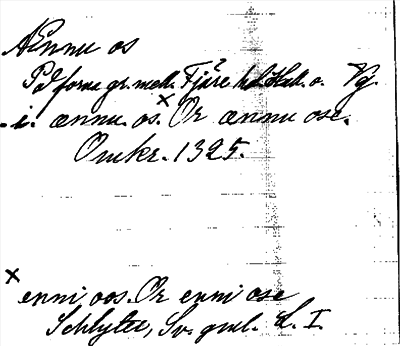 Ænnu os
På forna gr. mell. Fjäre hd Hal. o. Vg.
i. ænnu. os.× Or ænnu ose.
Omkr. 1325.
× enni oos. Or enni ose
Schlyter, Sv. gml. L. I.